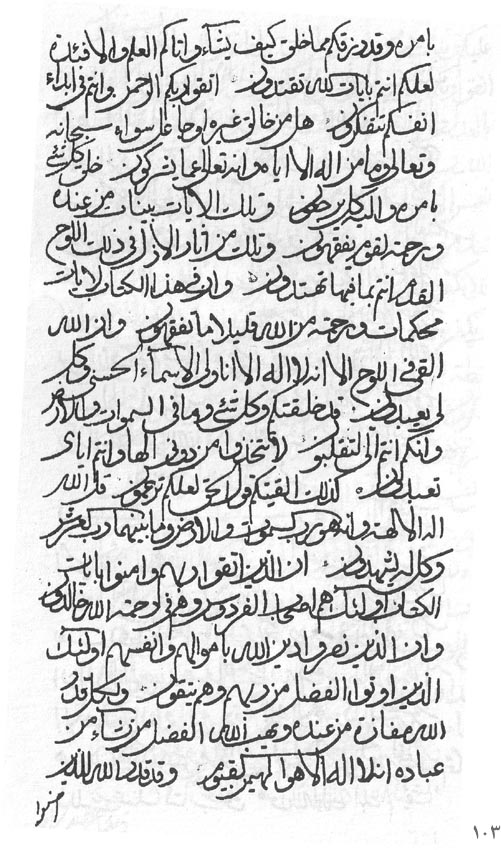 بامره وقد رزقكم مما خلق كيف يشآء واتاكم العلم والافئدة
لعلكم انتم بايات الله تهتدون اتقوا ربكم الرحمن وانتم فى ابداء
انفسكم تتفكرون هل من خالق غيره اوجاعل سواه سبحانه
وتعالى وما من اله الا اياه وانه تعالى عما يشركون خلق كل شئ
بامره واليه كل يرجعون وتلك الايات بينات من عنده
ورحمة لقوم يفقهون وتلك من اثار الازل فى ذلك اللوح
القدم انتم بما فيها تهتدون وان فى هذا الكتاب لايات
محكمات ورحمة من الله قليلا ما تفقهون وان الله
القى فى اللوح الا انه لا اله الا انا ولى الاسمآء الحسنى وكل
لى يعبدون قد خلقتكم وكل شئ وما فى السموات والارض
وانكم انتم الى لتقلبون لا تتخذوا من دونى الها وانتم اياى
تعبدون كذلك القيكم قول الحق لعلكم ترحمون قل الله
اله الالهة وانه هو رب السموات والارض وما بينهما رب العرش
وكل له يشهدون ان الذين اتقوا ربهم وامنوا بايات
الكتاب اولئك هم اصحاب الفردوس وهم فى رحمة الله خالدون
وان الذين نصروا دين الله باموالهم وانفسهم اولئك
الذين اوتوا الفضل من ربهم وهم يتقون ولكل قدر
الله مفازة من عنده ويهب الله الفضل من يشآء من
عباده انه لا اله الا هو المهيمن القيوم وقد قدر الله للذين
امنوا
١٠٣